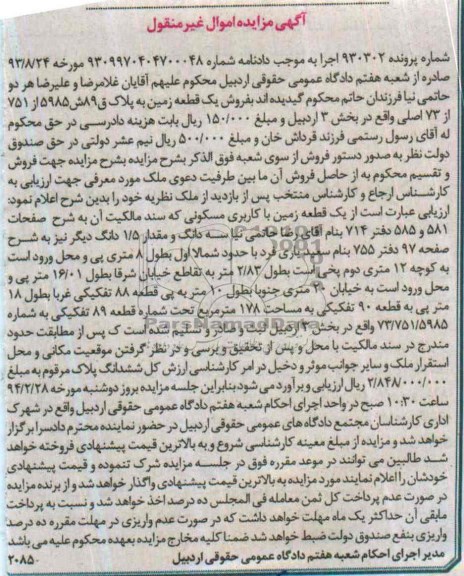 آگهی مزایده اموال غیر منقول
شماره پرونده ۹۳۰۳۰۲ اجرا به موجب دادنامه شماره ۹۳۰۹۹۷۰۴۰۴۷۰۰۰۴۸ مورخه ۹۳/۸/۲۴
صادره از شعبه هفتم دادگاه عمومی حقوقی اردبیل محکوم علیهم آقایان غلامرضا و علیرضا هر دو
حاتمی نیا فرزندان حاتم محکوم گردیده اند بفروش یک قطعه زمین به پلاک ق۸۹ش۵۹۸۵ از ۷۵۱
از ۷۳ اصلی واقع در بخش ۳ اردبیل و مبلغ ۱۵۰/۰۰۰ ریال بابت هزینه دادرسی در حق محکوم
له آقای رسول رستمی فرزند قرداش خان و مبلغ ۵۰۰/۰۰۰ ریال نیم عشر دولتی در حق صندوق
دولت نظر به صدور دستور فروش از سوی شعبه فوق الذکر بشرح مزایده بشرح مزایده جهت فروش
و تقسیم محکوم به از حاصل فروش آن ما بین طرفیت دعوی ملک مورد معرفی جهت ارزیابی به
کارشناس ارجاع و کارشناس منتخب پس از بازدید از ملک نظریه خود را بدین شرح اعلام نمود:
ارزیابی عبارت است از یک قطعه زمین با کاربری مسکونی که سند مالکیت آن به شرح صفحات
۵۸۱ و ۵۸۵ دفتر ۷۱۴ بنام آقای رضا حاتمی نیا سه دانگ و مقدار ۱/۵ دانگ دیگر نیز به شرح
صفحه ۹۷ دفتر ۷۵۵ بنام سعید یاری فرد با حدود شمالا اول بطول ۸ متری پی و محل ورود است
به کوچه ۱۲ متری دوم پخی است بطول ۲/۸۳ متر به تقاطع خیابان شرقا بطول ۱۶/۰۱ متر پی و
محل ورود است به خیابان ۲۰ متری جنوبا بطول ۱۰ متر به پی قطعه ۸۸ تفکیکی غربا بطول ۱۸
متر پی به قطعه ۹۰ تفکیکی به مساحت ۱۷۸ مترمربع تحت شماره قطعه ۸۹ تفکیکی به شماره
۷۳/۷۵۱/۵۹۸۵ واقع در بخش ۳ اردبیل است که پس از مطابقت حدود
مندرج در سند مالکیت با محل و پس از تحقیق و بررسی و در نظر گرفتن موقعیت مکانی و محل
استقرار ملک و سایر جوانب موثر و دخیل در امر کارشناسی ارزش کل ششدانگ پلاک مرقوم به مبلغ
۲/۸۴۸/۰۰۰/۰۰۰ ریال ارزیابی و برآورد می شود بنابراین جلسه مزایده بروز دوشنبه مورخه ۹۴/۲/۲۸
ساعت ۱۰:۳۰ صبح در واحد اجرای احکام شعبه هفتم دادگاه عمومی حقوقی اردبیل واقع در شهرک
اداری کارشناسان مجتمع دادگاه های عمومی حقوقی اردبیل در حضور نماینده محترم دادسرا برگزار
خواهد شد و مزایده از مبلغ معینه کارشناسی شروع و به بالاترین قیمت پیشنهادی فروخته خواهد
شد طالبین می توانند در موعد مقرره فوق در جلسه مزایده شرکت ننموده و قیمت پیشنهادی
خودشان را اعلام نمایند مورد مزایده به بالاترین قیمت پیشنهادی واگذار خواهد شد و از برنده مزایده
در صورت عدم پرداخت کل ثمن معامله فی المجلس ده درصد اخذ خواهد شد و نسبت به پرداخت
مابقی آن حداکثر یک ماه مهلت خواهد داشت که در صورت عدم واریزی در مهلت مقرره ده درصد
واریزی بنفع صندوق دولت ضبط خواهد شد ضمنا کلیه مخارج مزایده بعهده محکوم علیه می باشد
مدیر اجرای احکام شعبه هفتم دادگاه عمومی حقوقی اردبیل ۲۰۸۵